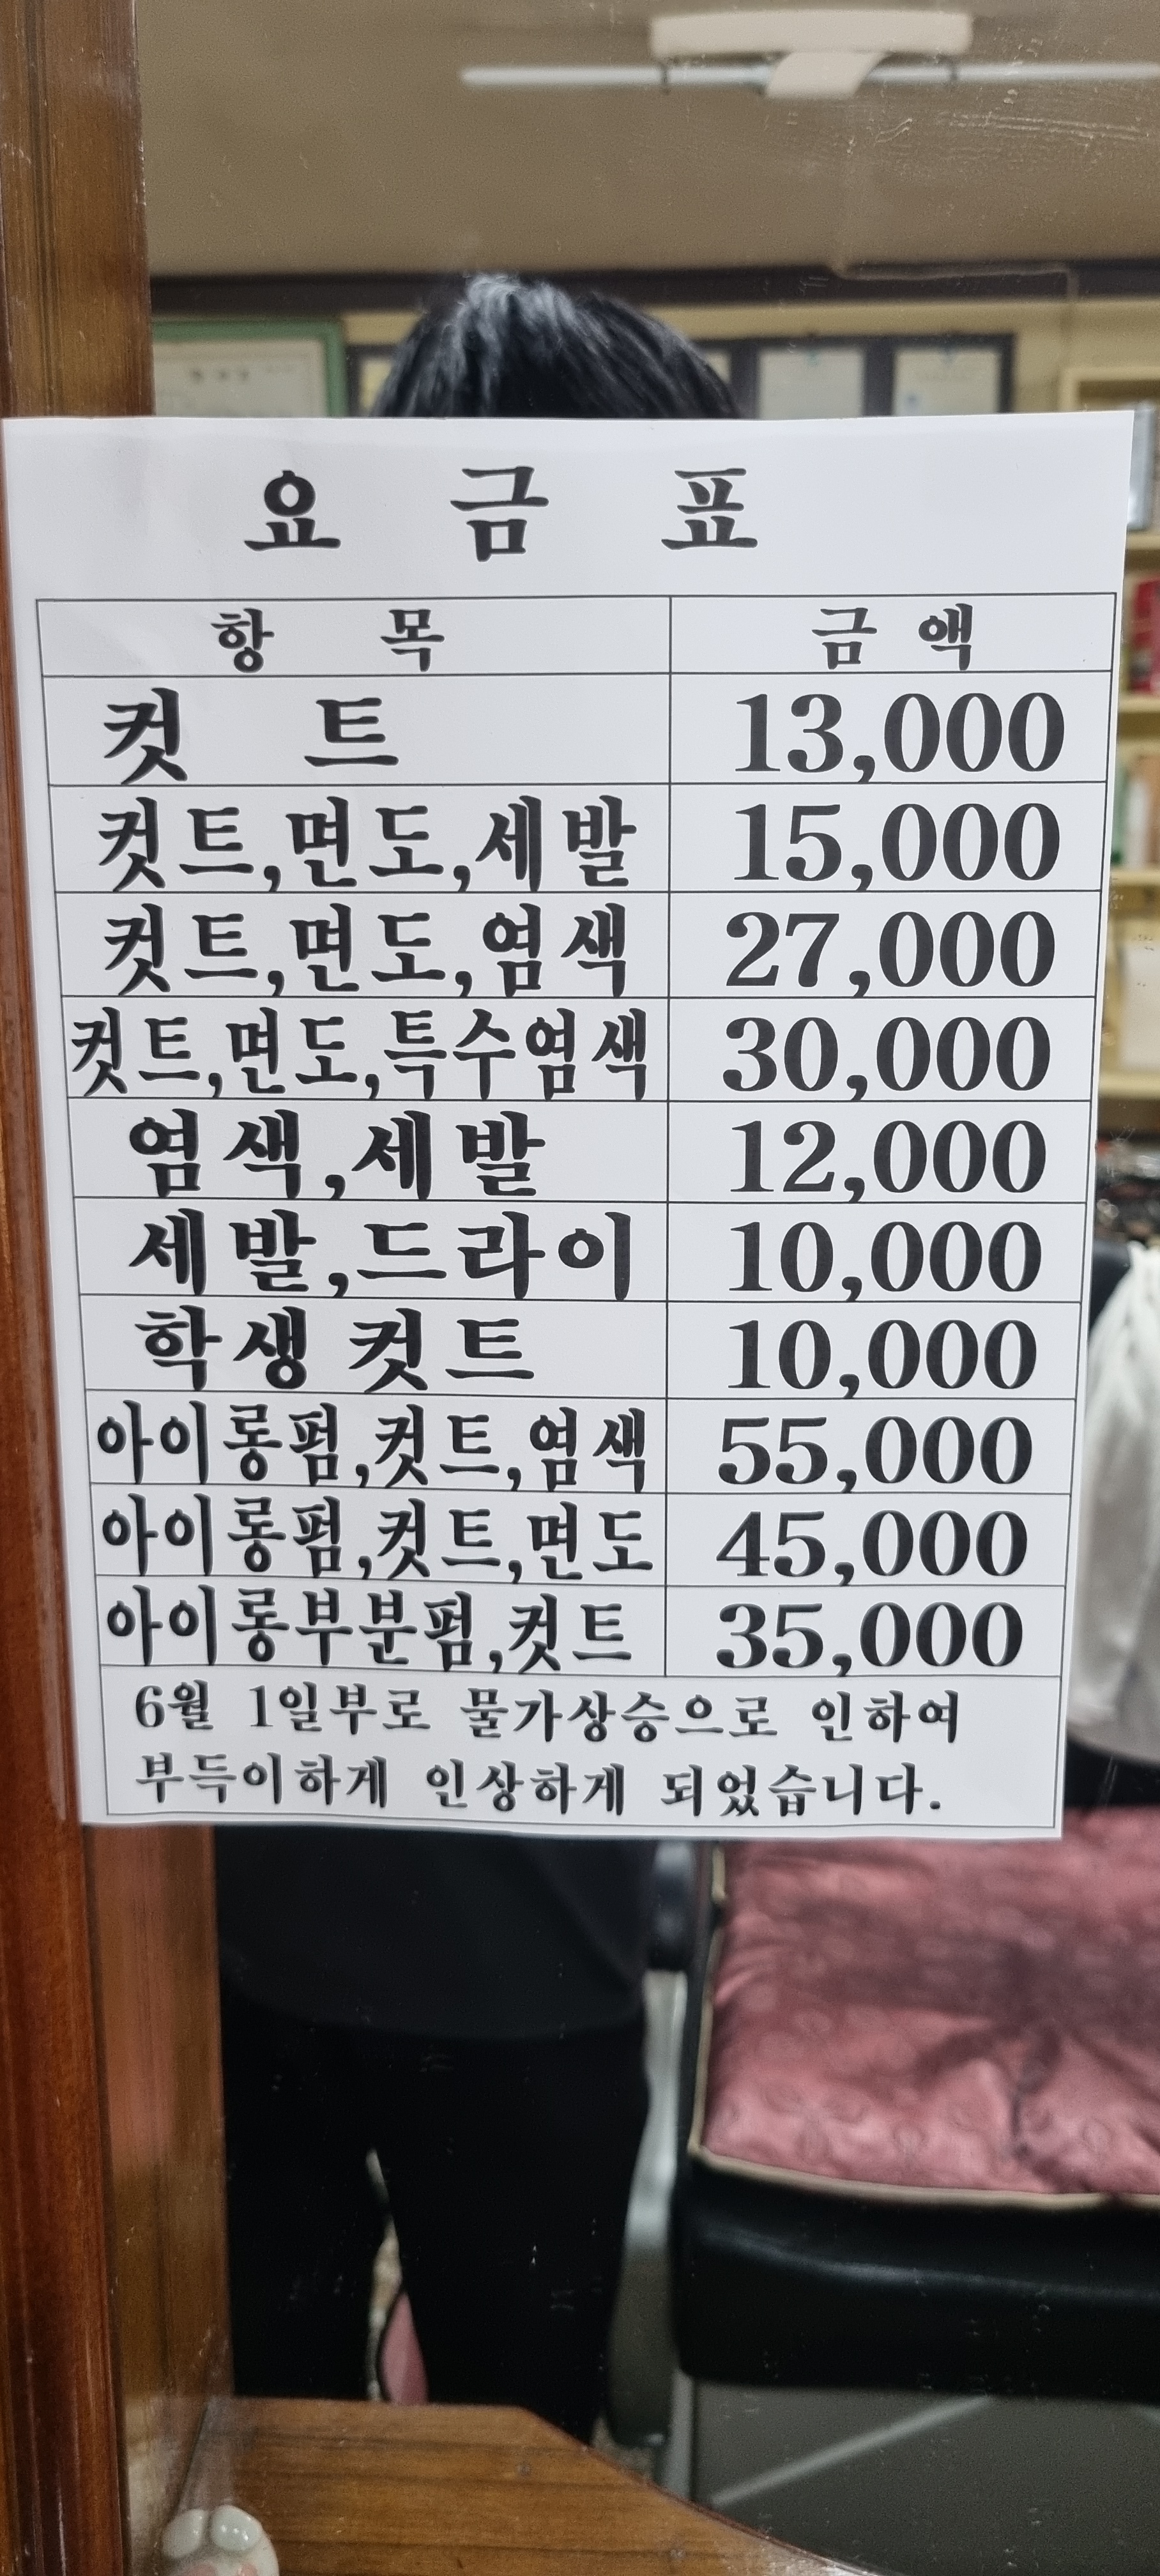 요 금 표
항 목 금 액
컷 트 13,000
컷트,면도,세발 15,000
컷트,면도,염색 27,000
컷트,면도,특수염색 30,000
염색,세발 12,000
세발,드라이 10,000
학생컷트 10,000
아이롱펌,컷트,염색 55,000
아이롱펌,컷트,면도 45,000
아이롱부분펌,컷트 35,000
6월 1일부로 물가상승으로 인하여
부득이하게 인상하게 되었습니다.